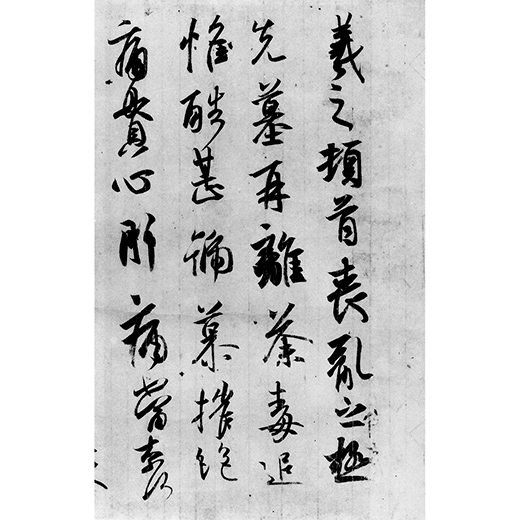 羲之頓首喪亂之極
先墓再離荼毒追
惟酷甚號慕摧絕
痛貫心肝痛當奈何